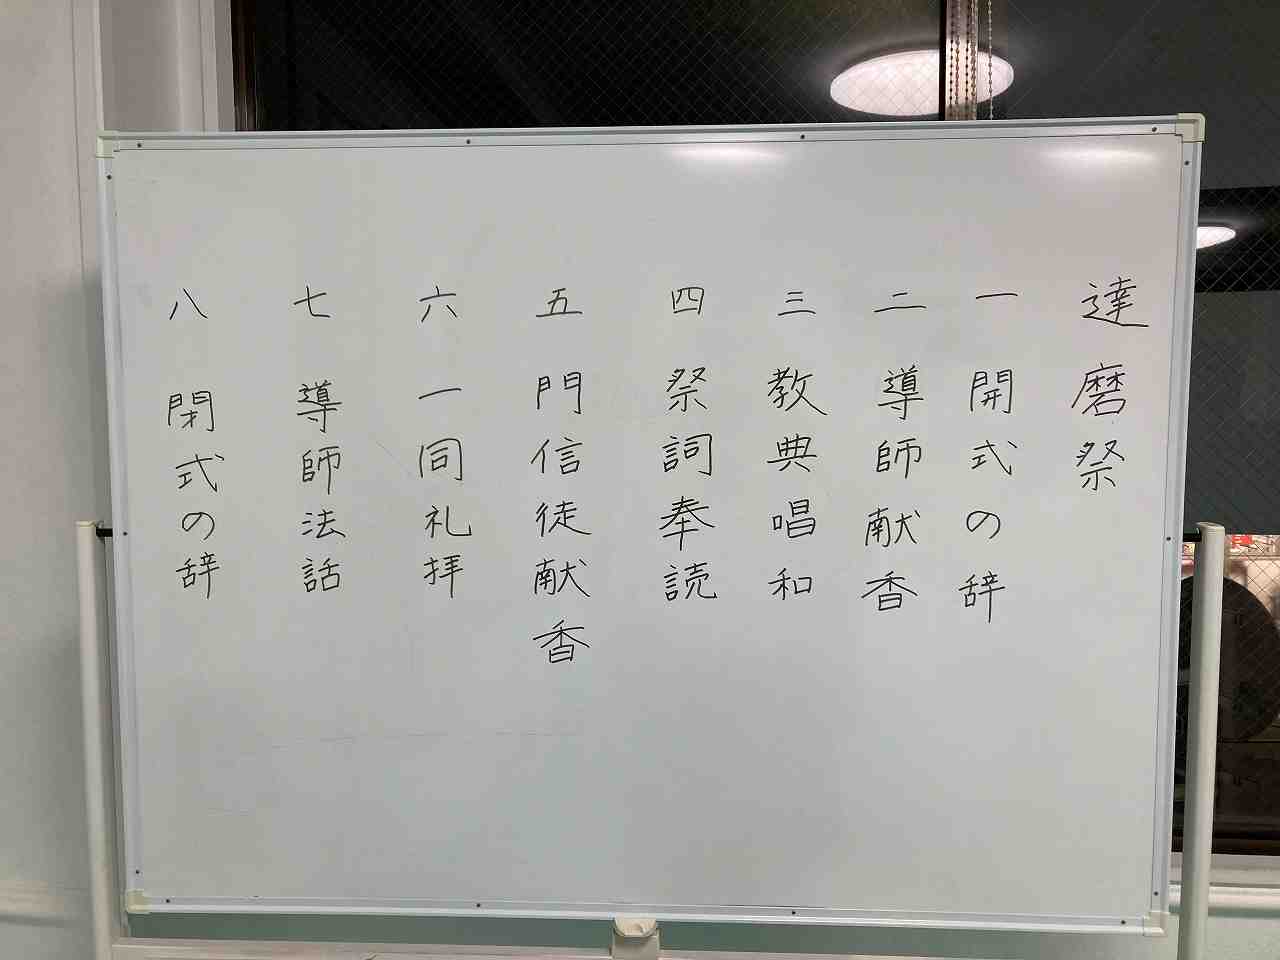 達磨祭
一 開式の辞
二 導師献香
三 教典唱和
四 祭詞奉読
五 門信徒献香
六 一同礼拝
七 導師法話
八 閉式の辞